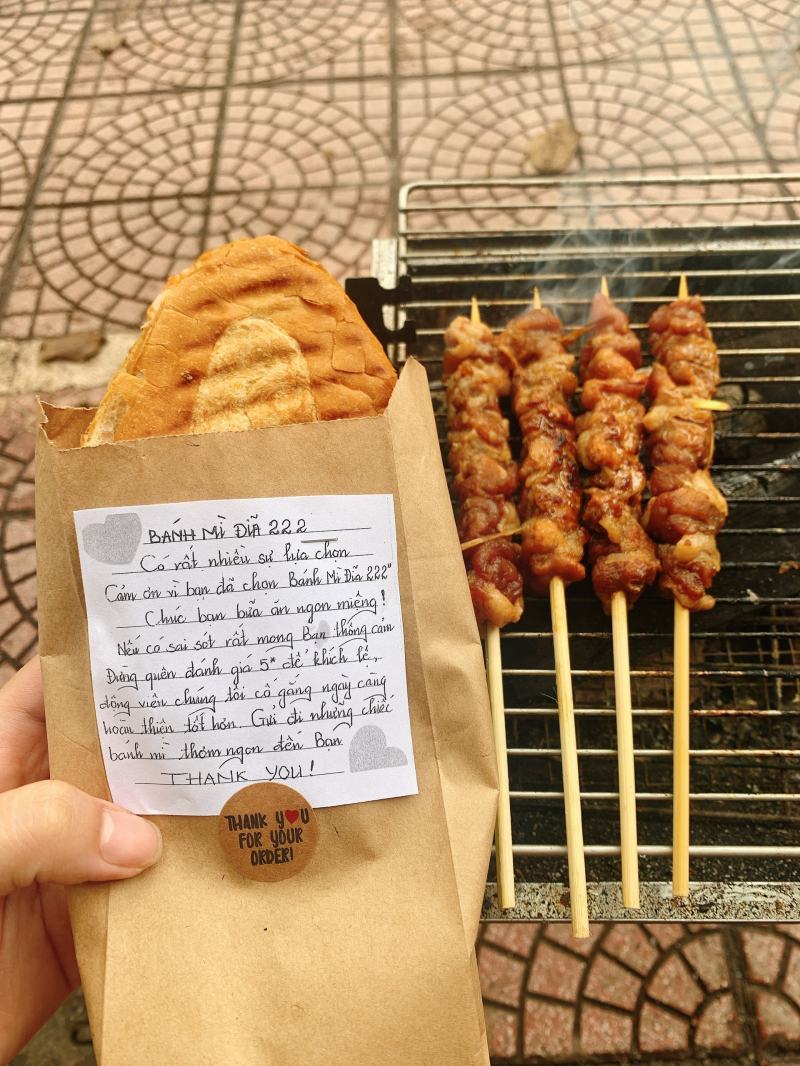 BÁNH MÌ DĨA 222
Có rất nhiều sự lựa chọn
Cảm ơn vì bạn đã chọn Bánh Mì Dĩa 222"
Chúc bạn bữa ăn ngon miệng!
Nếu có sai sót rất mong Bạn thông cảm
Đừng quên đánh giá 5* để khích lệ,
động viên chúng tôi cố gắng ngày càng
hoàn thiện tốt hơn. Gửi đi những chiếc
bánh mì thơm ngon đến Bạn
THANK YOU!
THANK Y♥U
FOR YOUR
ORDER!